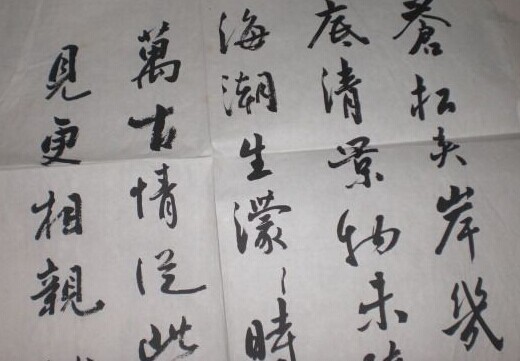 蒼松夾岸幾
底清景物未
海潮生濛〻時
萬古情從此
見更相親